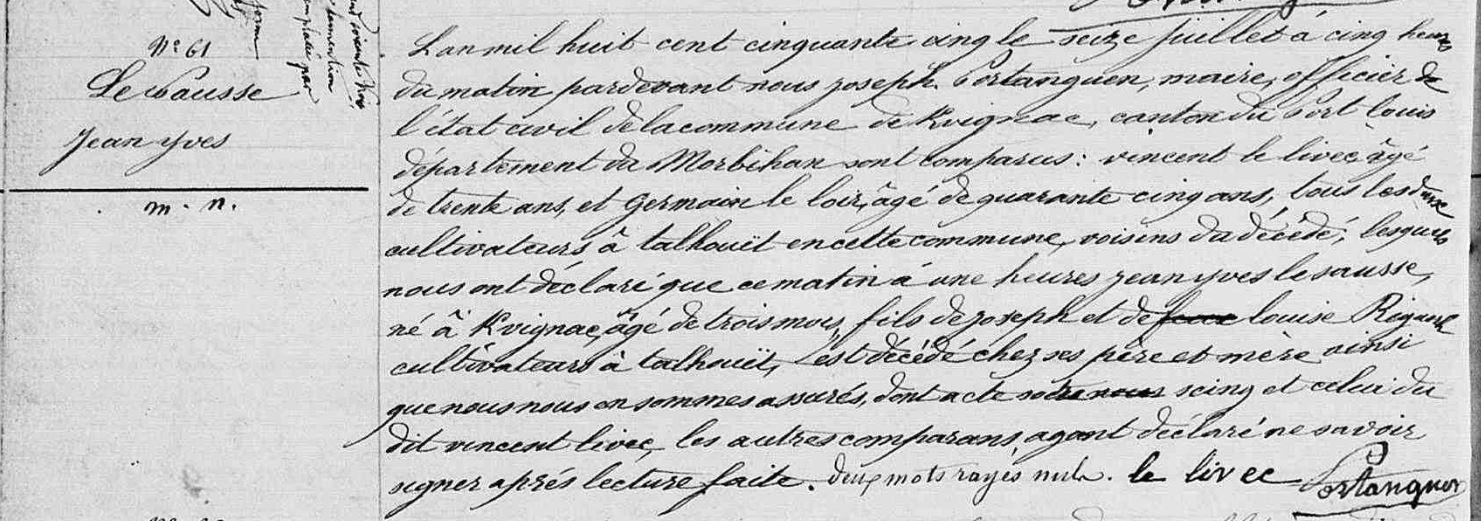 N° 61
Le sausse
jean yves
m. n.
L'an mil huit cent cinquante cinq le seize juillet à cinq heures
du matin pardevant nous joseph Portanguen, maire, officier de
l'état civil de la commune de Kvignac, canton du Port louis
département du Morbihan sont comparus : vincent le livec, âgé
de trente ans, et Germain le loir, âgé de quarante cinq ans, tous les deux
cultivateurs à talhouët en cette commune, voisins du décédé, lesquels
nous ont déclaré que ce matin à une heures jean yves le sausse,
né à Kvignac, âgé de trois mois, fils de joseph et de louise
cultivateurs à talhouët, est décédé chez ses père et mère ainsi
que nous nous en sommes assurés, dont acte seing et celui du
dit vincent livec, les autres comparans ayant déclaré ne savoir
signer après lecture faite. deux mots rayés nuls. le livec Portanguen